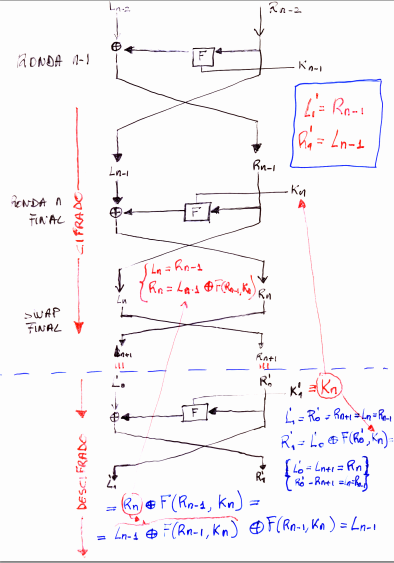 Ln-2
Rn-2
⊕
F
RONDA n-1
Kn-1
L'1 = Rn-1
R'1 = Ln-1
Ln-1
Rn-1
Kn
RONDA n
FINAL
⊕
F
CIFRADO
{ Ln = Rn-1
Rn = Ln-1 ⊕ F(Rn-1, Kn)
Ln
Rn
SWAP
FINAL
Ln+1
Rn+1
L'0
K'1 = Kn
⊕
F
L'1 = R'0 = Rn+1 = Ln = Rn-1
R'1 = L'0 ⊕ F(R'0, Kn) =
{ L'0 = Ln+1 = Rn }
DESCIFRADO
L'1
R'1
= Rn ⊕ F(Rn-1, Kn) =
= Ln-1 ⊕ F(Rn-1, Kn) ⊕ F(Rn-1, Kn) = Ln-1